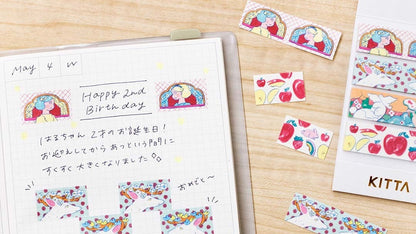 May 4 W
Happy 2nd
Birthday
はるちゃん 2才のお誕生日!
お迎えしてから あっという間に
すくすく 大きくなりました。
おめでと〜
KITTA